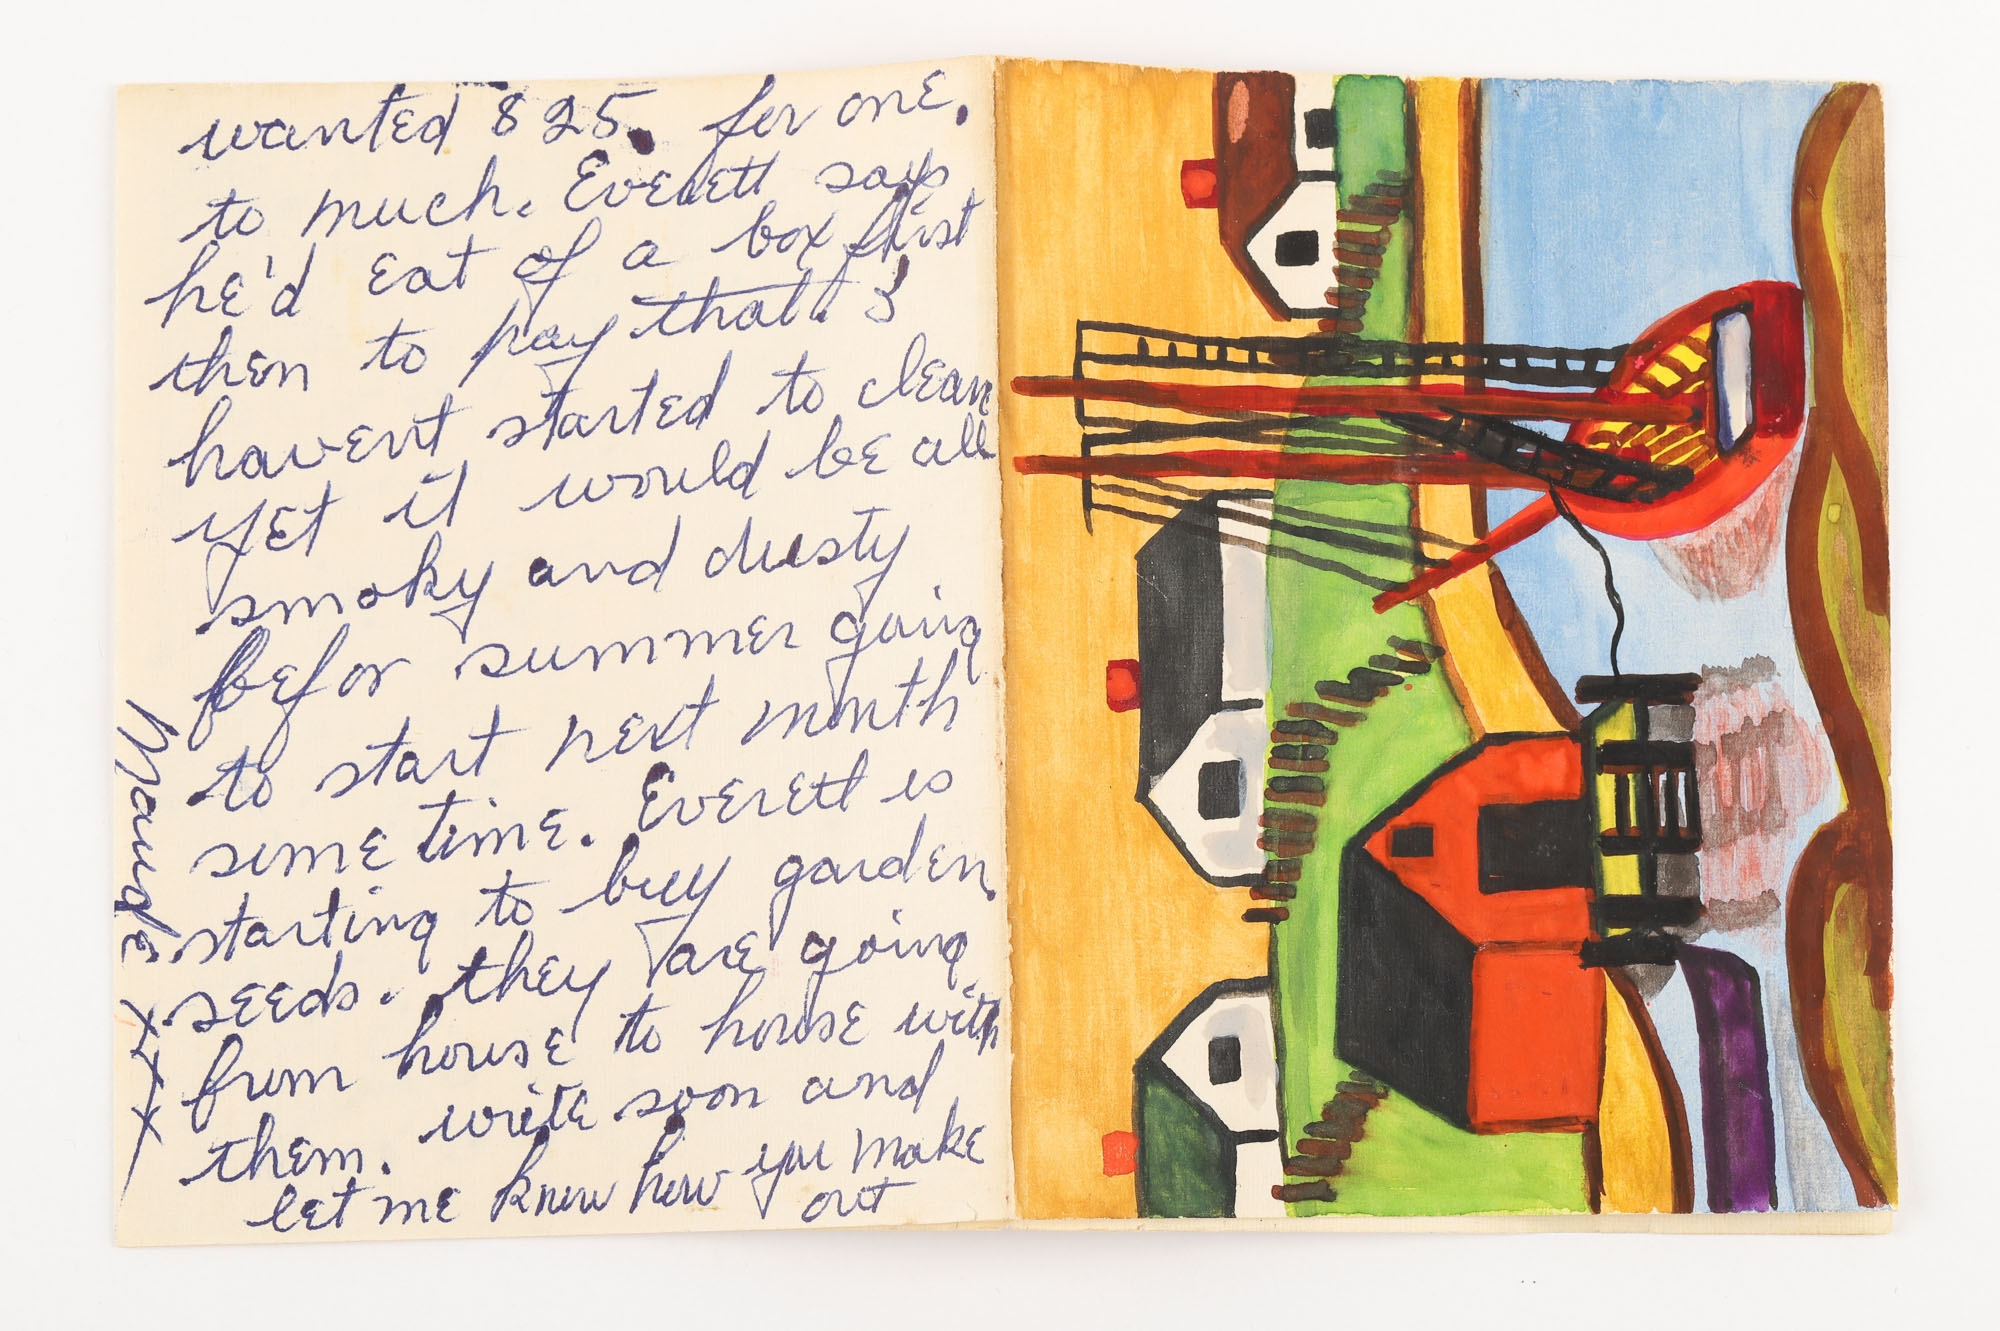 wanted 825. for one.
to much. Everett says
he'd eat of a box first
then to pay that. I
havent started to clean
yet it would be all
smoky and dusty
befor summer going
to start next month
some time. Everett is
starting to buy garden
seeds. they are going
from house to house with
them. write soon and
let me know how you make
out
Maude xxxx